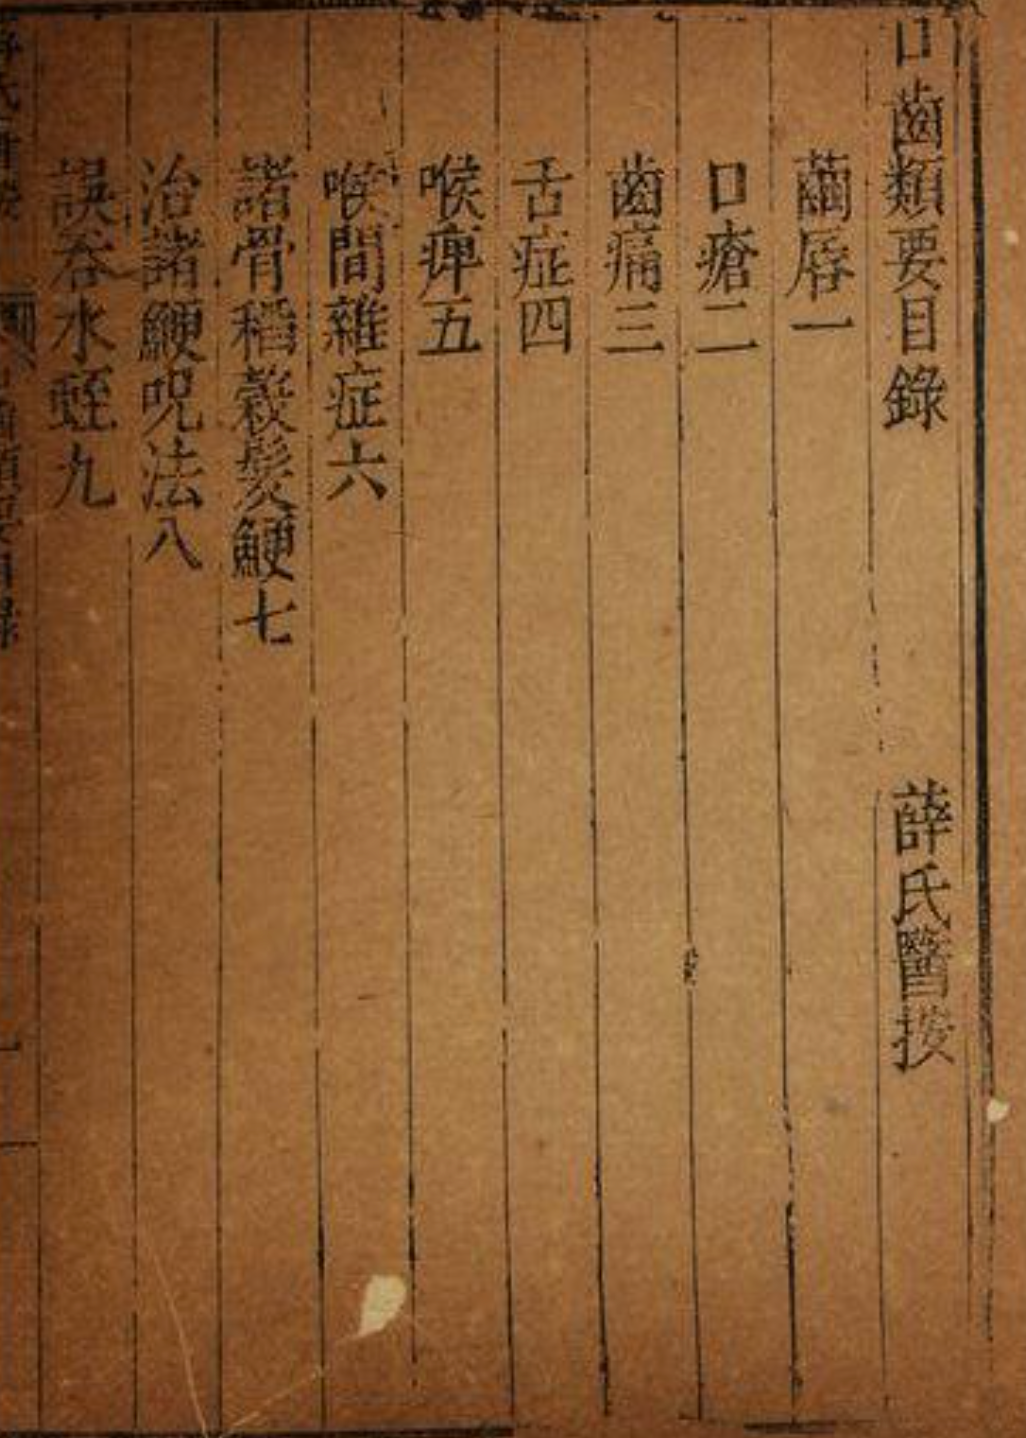 口齒類要目錄 薛氏醫按
繭唇一
口瘡二
齒痛三
舌症四
喉痺五
喉間雜症六
諸骨稻穀髮鯁七
治諸鯁呪法八
誤吞水蛭九